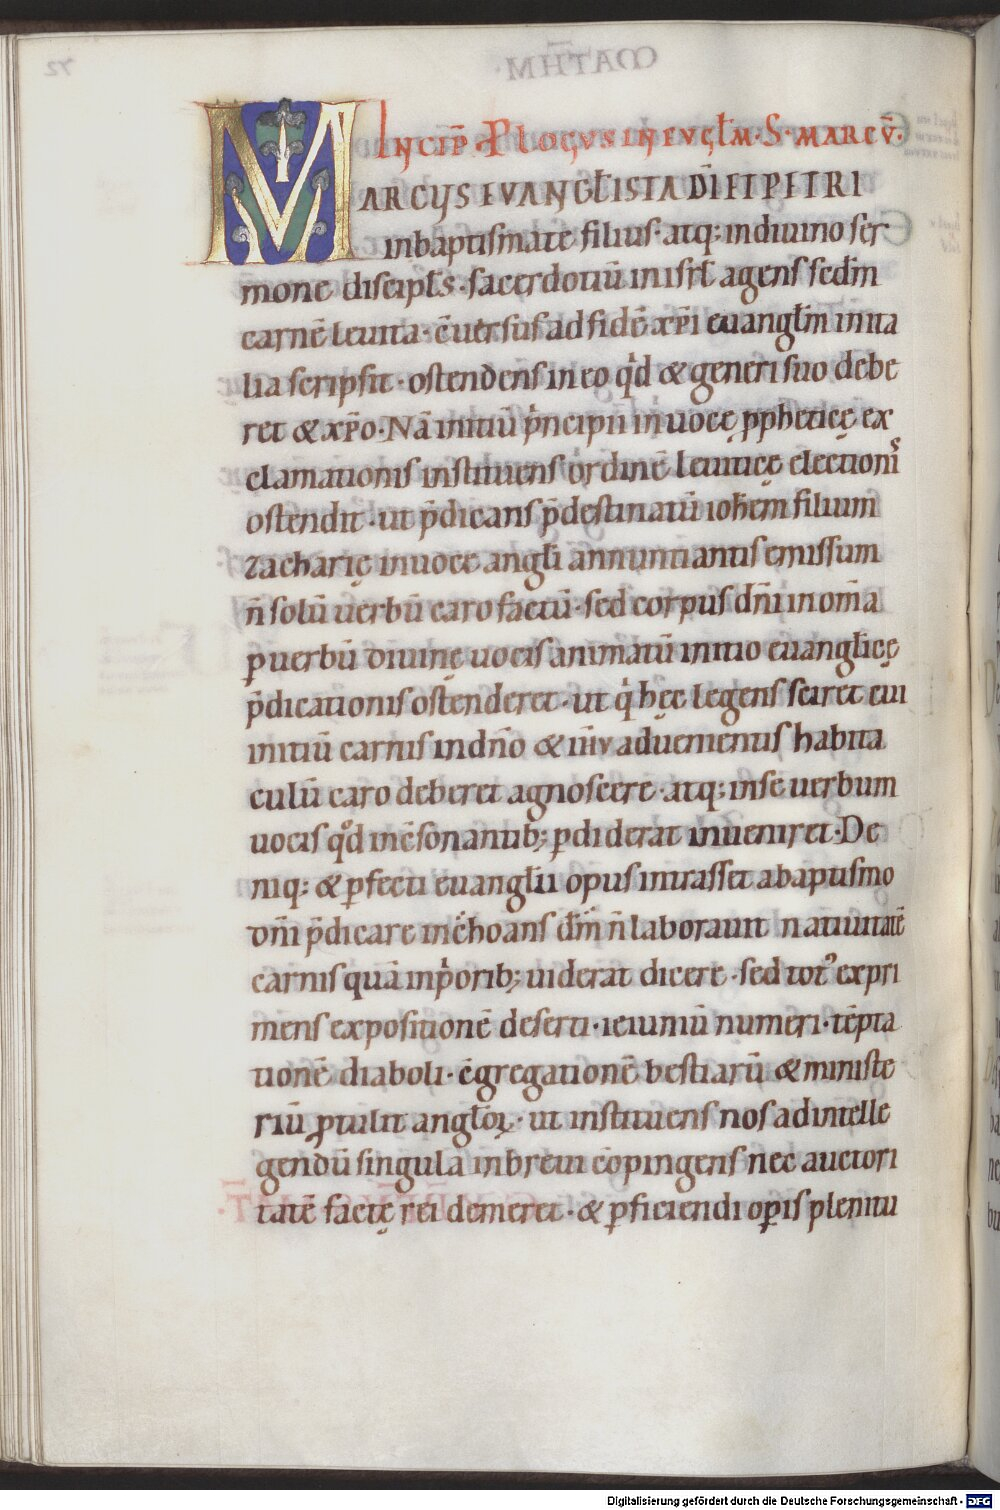 Incip̄ P̄logus in euḡlm S. Marcū.
MARCUS EVANGL̄ISTA DĪ ET PETRI
in baptismate filius · atq; in diuino ser
mone discipl̄s · sacerdotiū in isrl̄ agens scd̄m
carnē leuita · c̄uersus ad fidē xp̄i euangl̄m in ita
lia scripsit · ostendens in eo qͥd & generi suo debe
ret & xp̄o · Nā initiū pͥncipii in uocę ꝓpheticę ex
clamationis instituens ordinē leuiticę electionis
ostendit · ut p̄dicans p̄destinatū ioh̄em filium
zacharię in uoce angl̄i annuntiantis emissum
n̄ solū uerbū caro factū · sed corpus dn̄i in om̄a
ꝑ uerbū diuinę uocis animatū initio euangl̄icę
p̄dicationis ostenderet · ut qͥ hęc legens sciret cui
initiū carnis in dn̄o & ih̄u aduenientis habita
culū caro deberet agnoscere · atq; in se uerbum
uocis qͦd in c̄sonantib; ꝑdiderat inueniret · De
niq; & ꝑfecti euangl̄ii opus intrasset a baptismo
dn̄i p̄dicare inchoans dm̄ n̄ laborauit natiuitatē
carnis quā in pͥorib; uiderat dicere · sed tot᾽ expri
mens expositionē deserti · ieiuniū numeri · tēpta
tionē diaboli · c̄gregationē bestiarū & ministe
riū ꝓtulit angl̄oꝝ · ut instituens nos ad intelle
gendū singula in breui cōpingens nec auctori
tatē factę rei demeret · & ꝑficiendi oꝑis plenitu
Digitalisierung gefördert durch die Deutsche Forschungsgemeinschaft - DFG